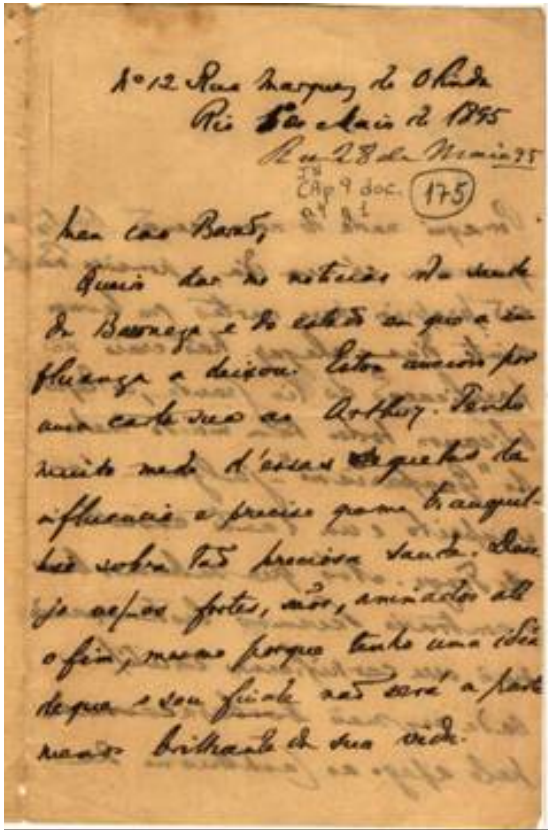 Nº 12 Rua Marquez de Olinda
Rio 5 de Maio de 1895
28 de Maio 95
CAp 9 doc. 175
Meu caro Barão,
Queira dar me noticias da saude
da Baroneza e do estado em que a in
fluenza a deixou. Estou ancioso por
uma carta sua ao Arthur. Tenho
muito medo d'essas sequelas da
influencia e preciso que me tranquil-
lise sobre tão preciosa saude. Dese
jo fortes, sãos, animados até
o fim, mesmo porque tenho uma idéa
de que o seu finale não será a parte
menos brilhante da sua vida.